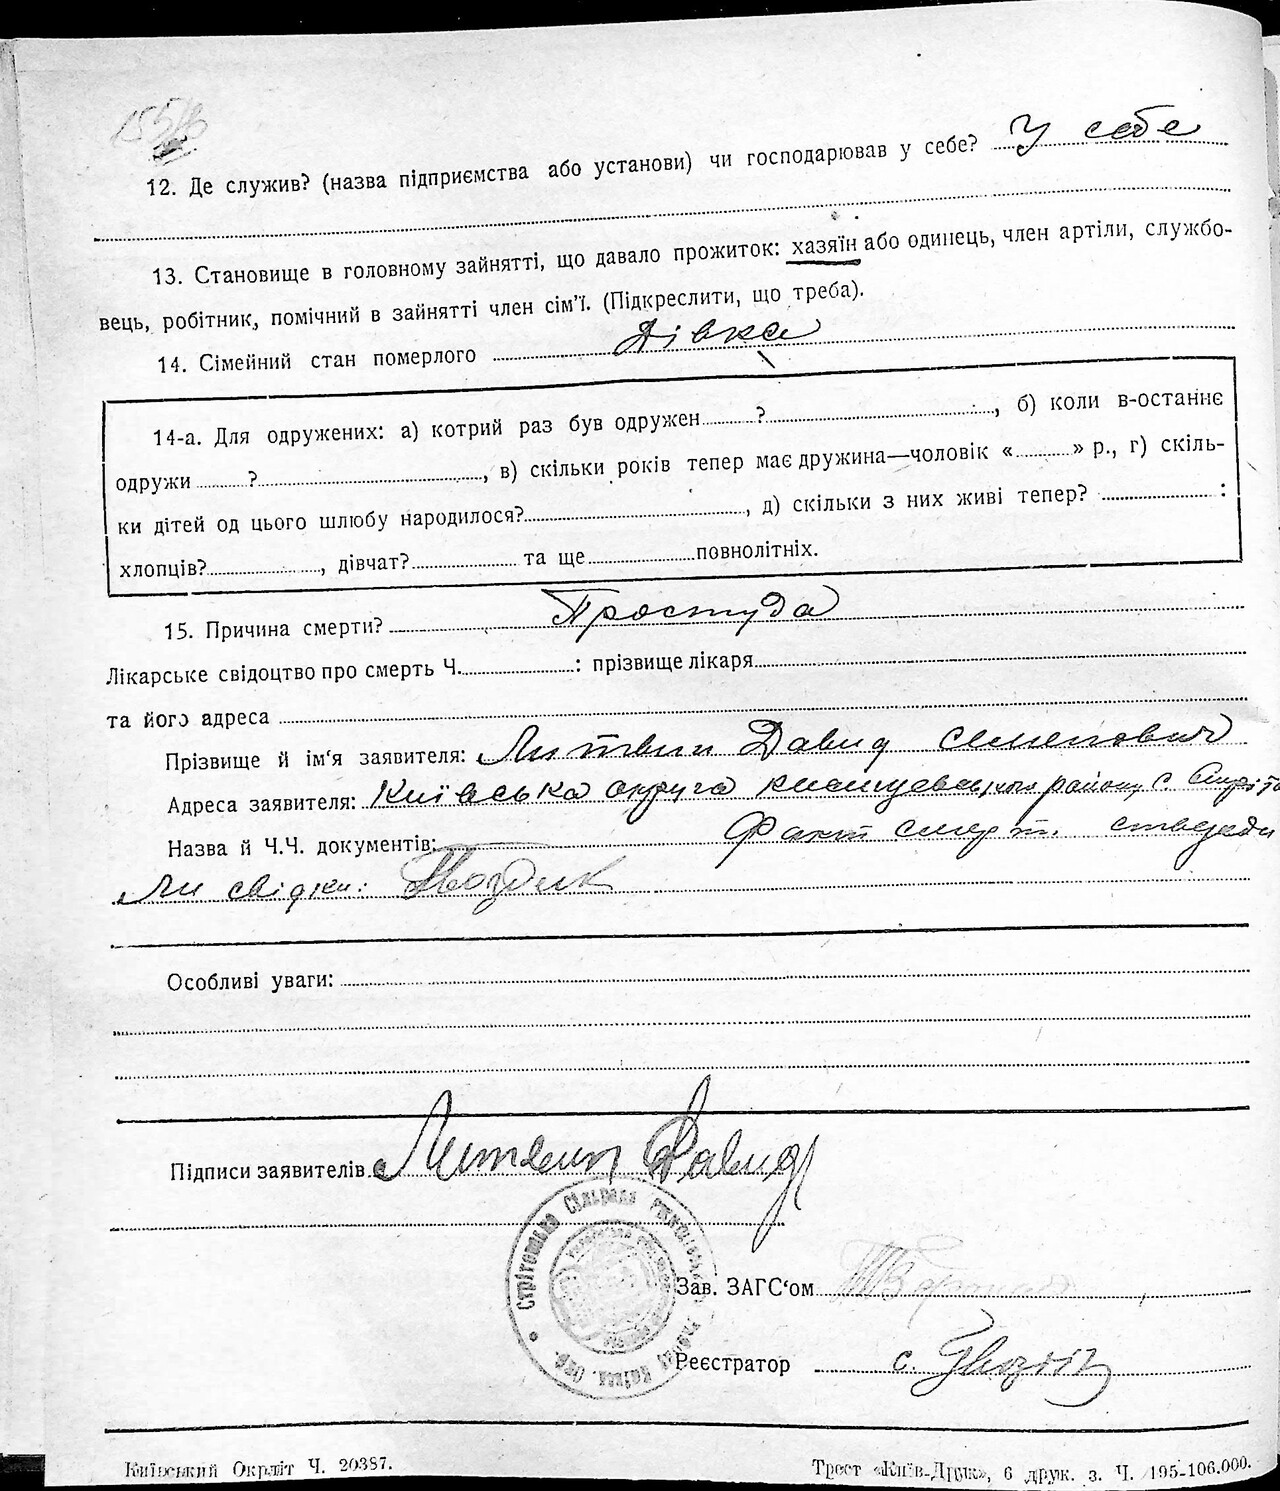 12. Де служив? (назва підприємства або установи) чи господарював у себе? У себе
13. Становище в головному зайнятті, що давало прожиток: хазяїн або одинець, член артіли, службо-
вець, робітник, помічний в зайнятті член сім'ї. (Підкреслити, що треба).
14. Сімейний стан померлого Дівка
14-а. Для одружених: а) котрий раз був одружен ?, б) коли в-останнє
одружи ?, в) скільки років тепер має дружина—чоловік « » р., г) скіль-
ки дітей од цього шлюбу народилося?, д) скільки з них живі тепер? :
хлопців?, дівчат? та ще повнолітніх.
15. Причина смерти? Простуда
Лікарське свідоцтво про смерть Ч. : прізвище лікаря
та його адреса
Прізвище й ім'я заявителя: Литвин Давид Семенович
Адреса заявителя: Київська округа району с.
Назва й Ч.Ч. документів: Факт смерт. ствердi
ли свідки: Гвоздик
Особливі уваги:
Підписи заявителів Литвин Давид
Стрітовська Сільрада
Зав. ЗАГС'ом
Реєстратор
Київський Окрліт Ч. 20387.
Трест «Київ-Друк», 6 друк. з. Ч. 195-106.000.